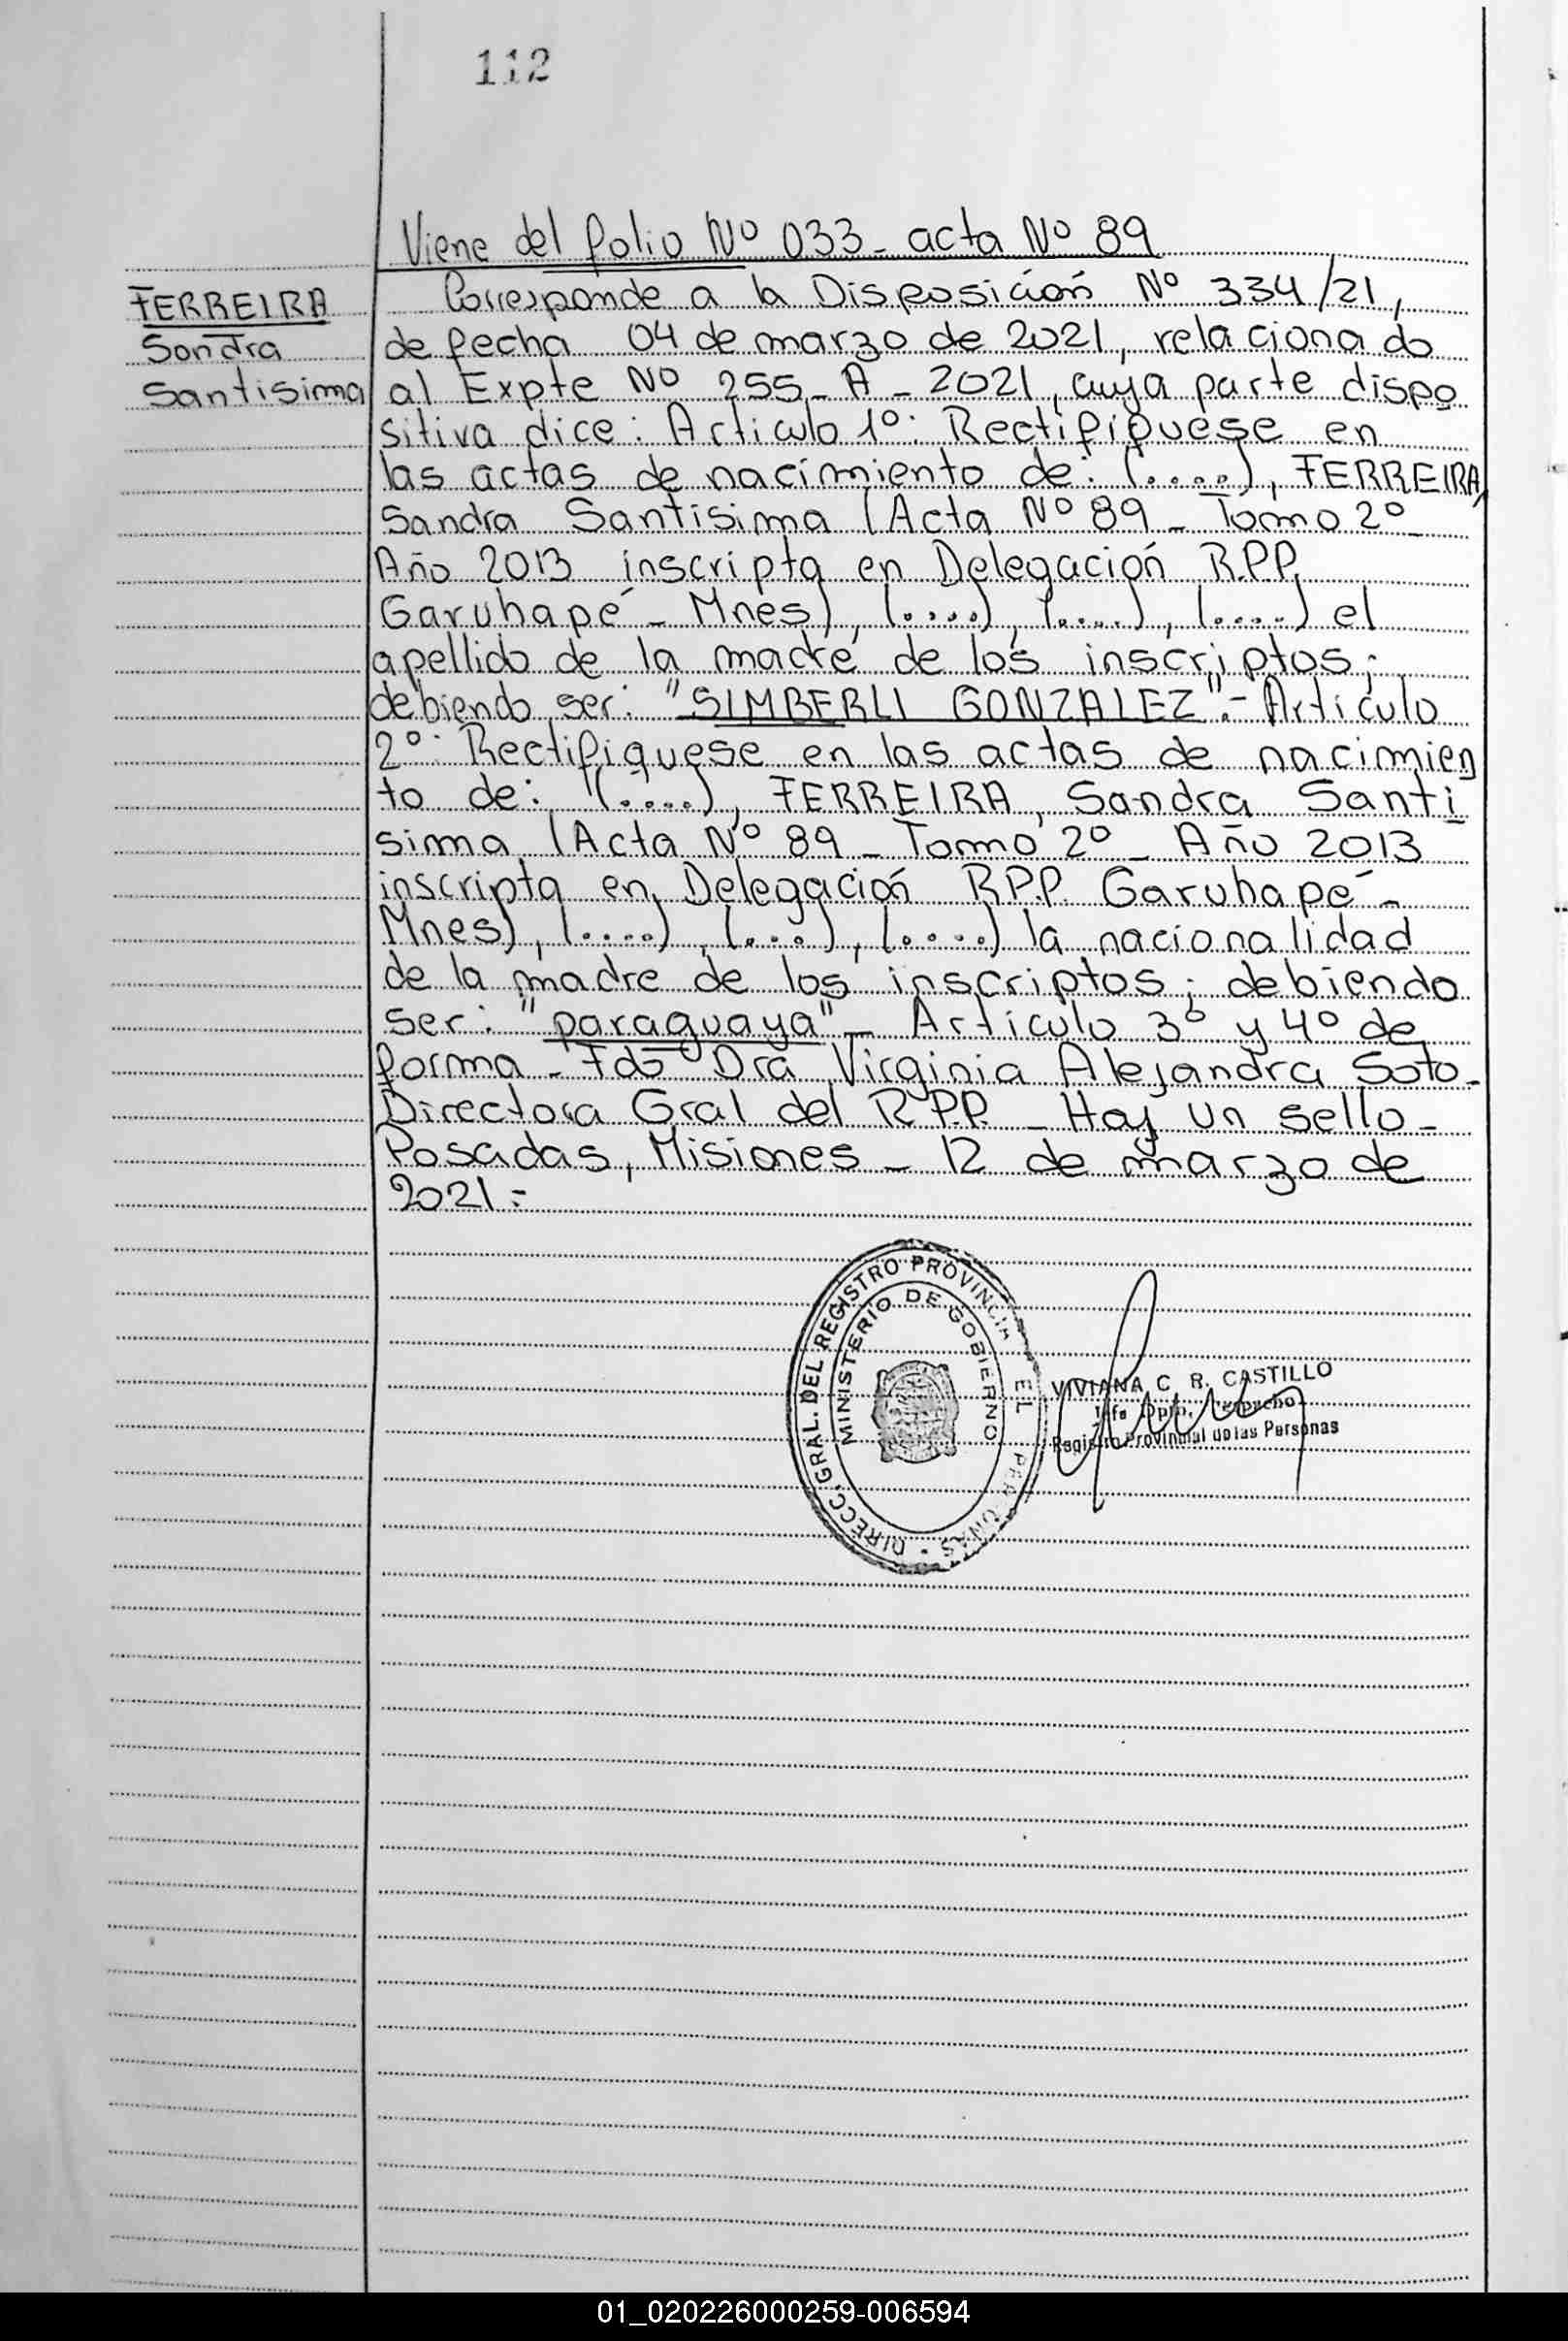 112
Viene del folio Nº 033 - acta Nº 89
FERREIRA
Sandra
Santisima
Corresponde a la Disposición Nº 334/21,
de fecha 04 de marzo de 2021, relacionado
al Expte Nº 255 - A - 2021, cuya parte dispo
sitiva dice: Articulo 1º: Rectifiquese en
las actas de nacimiento de: (....), FERREIRA,
Sandra Santisima (Acta Nº 89 - Tomo 2º
Año 2013 inscripta en Delegación R.P.P.
Garuhapé - Mnes), (....), (....), (....) el
apellido de la madre de los inscriptos;
debiendo ser: "SIMBERLI GONZALEZ".- Articulo
2º: Rectifiquese en las actas de nacimien
to de: (....), FERREIRA, Sandra Santi
sima (Acta Nº 89 - Tomo 2º - Año 2013
inscripta en Delegación R.P.P. Garuhapé -
Mnes), (....), (...), (....) la nacionalidad
de la madre de los inscriptos; debiendo
ser: "paraguaya" - Articulo 3º y 4º de
forma - Fdo Dra Virginia Alejandra Soto -
Directora Gral del R.P.P. - Hay un sello -
Posadas, Misiones - 12 de marzo de
2021 =
DIRECC. GRAL. DEL REGISTRO PROVINCIAL
MINISTERIO DE GOBIERNO
VIVIANA C. R. CASTILLO
Jefe Dpto. Despacho
Registro Provincial de las Personas
01_020226000259-006594